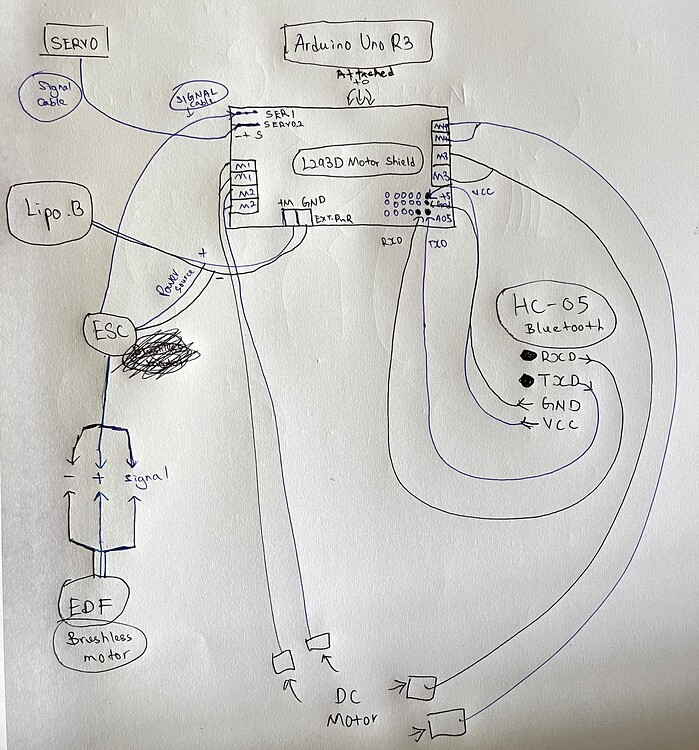 SERVO
Arduino Uno R3
Attached
to
Signal
cable
SIGNAL
cable
SER1
SERVO2
- + S
L293D Motor Shield
M1
M1
M2
M2
M4
M4
M3
M3
+M GND
EXT.PWR
+5
Gnd
A05
VCC
RXD
TXD
Lipo.B
+
-
Power
source
ESC
HC-05
Bluetooth
RXD
TXD
GND
VCC
- + signal
EDF
Brushless
motor
DC
Motor